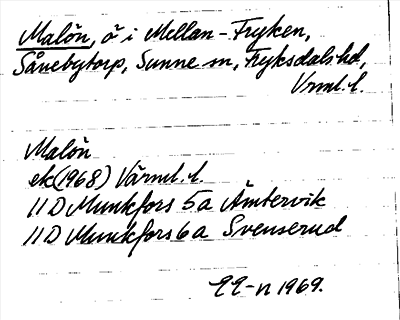 Malön, ö i Mellan-Fryken,
Sånebytorp, Sunne sn, Fryksdals hd,
Vrml. l.
Malön
ek (1968) Värml. l.
11D Munkfors 5a Ämtervik
11D Munkfors 6a Svenserud
1969.